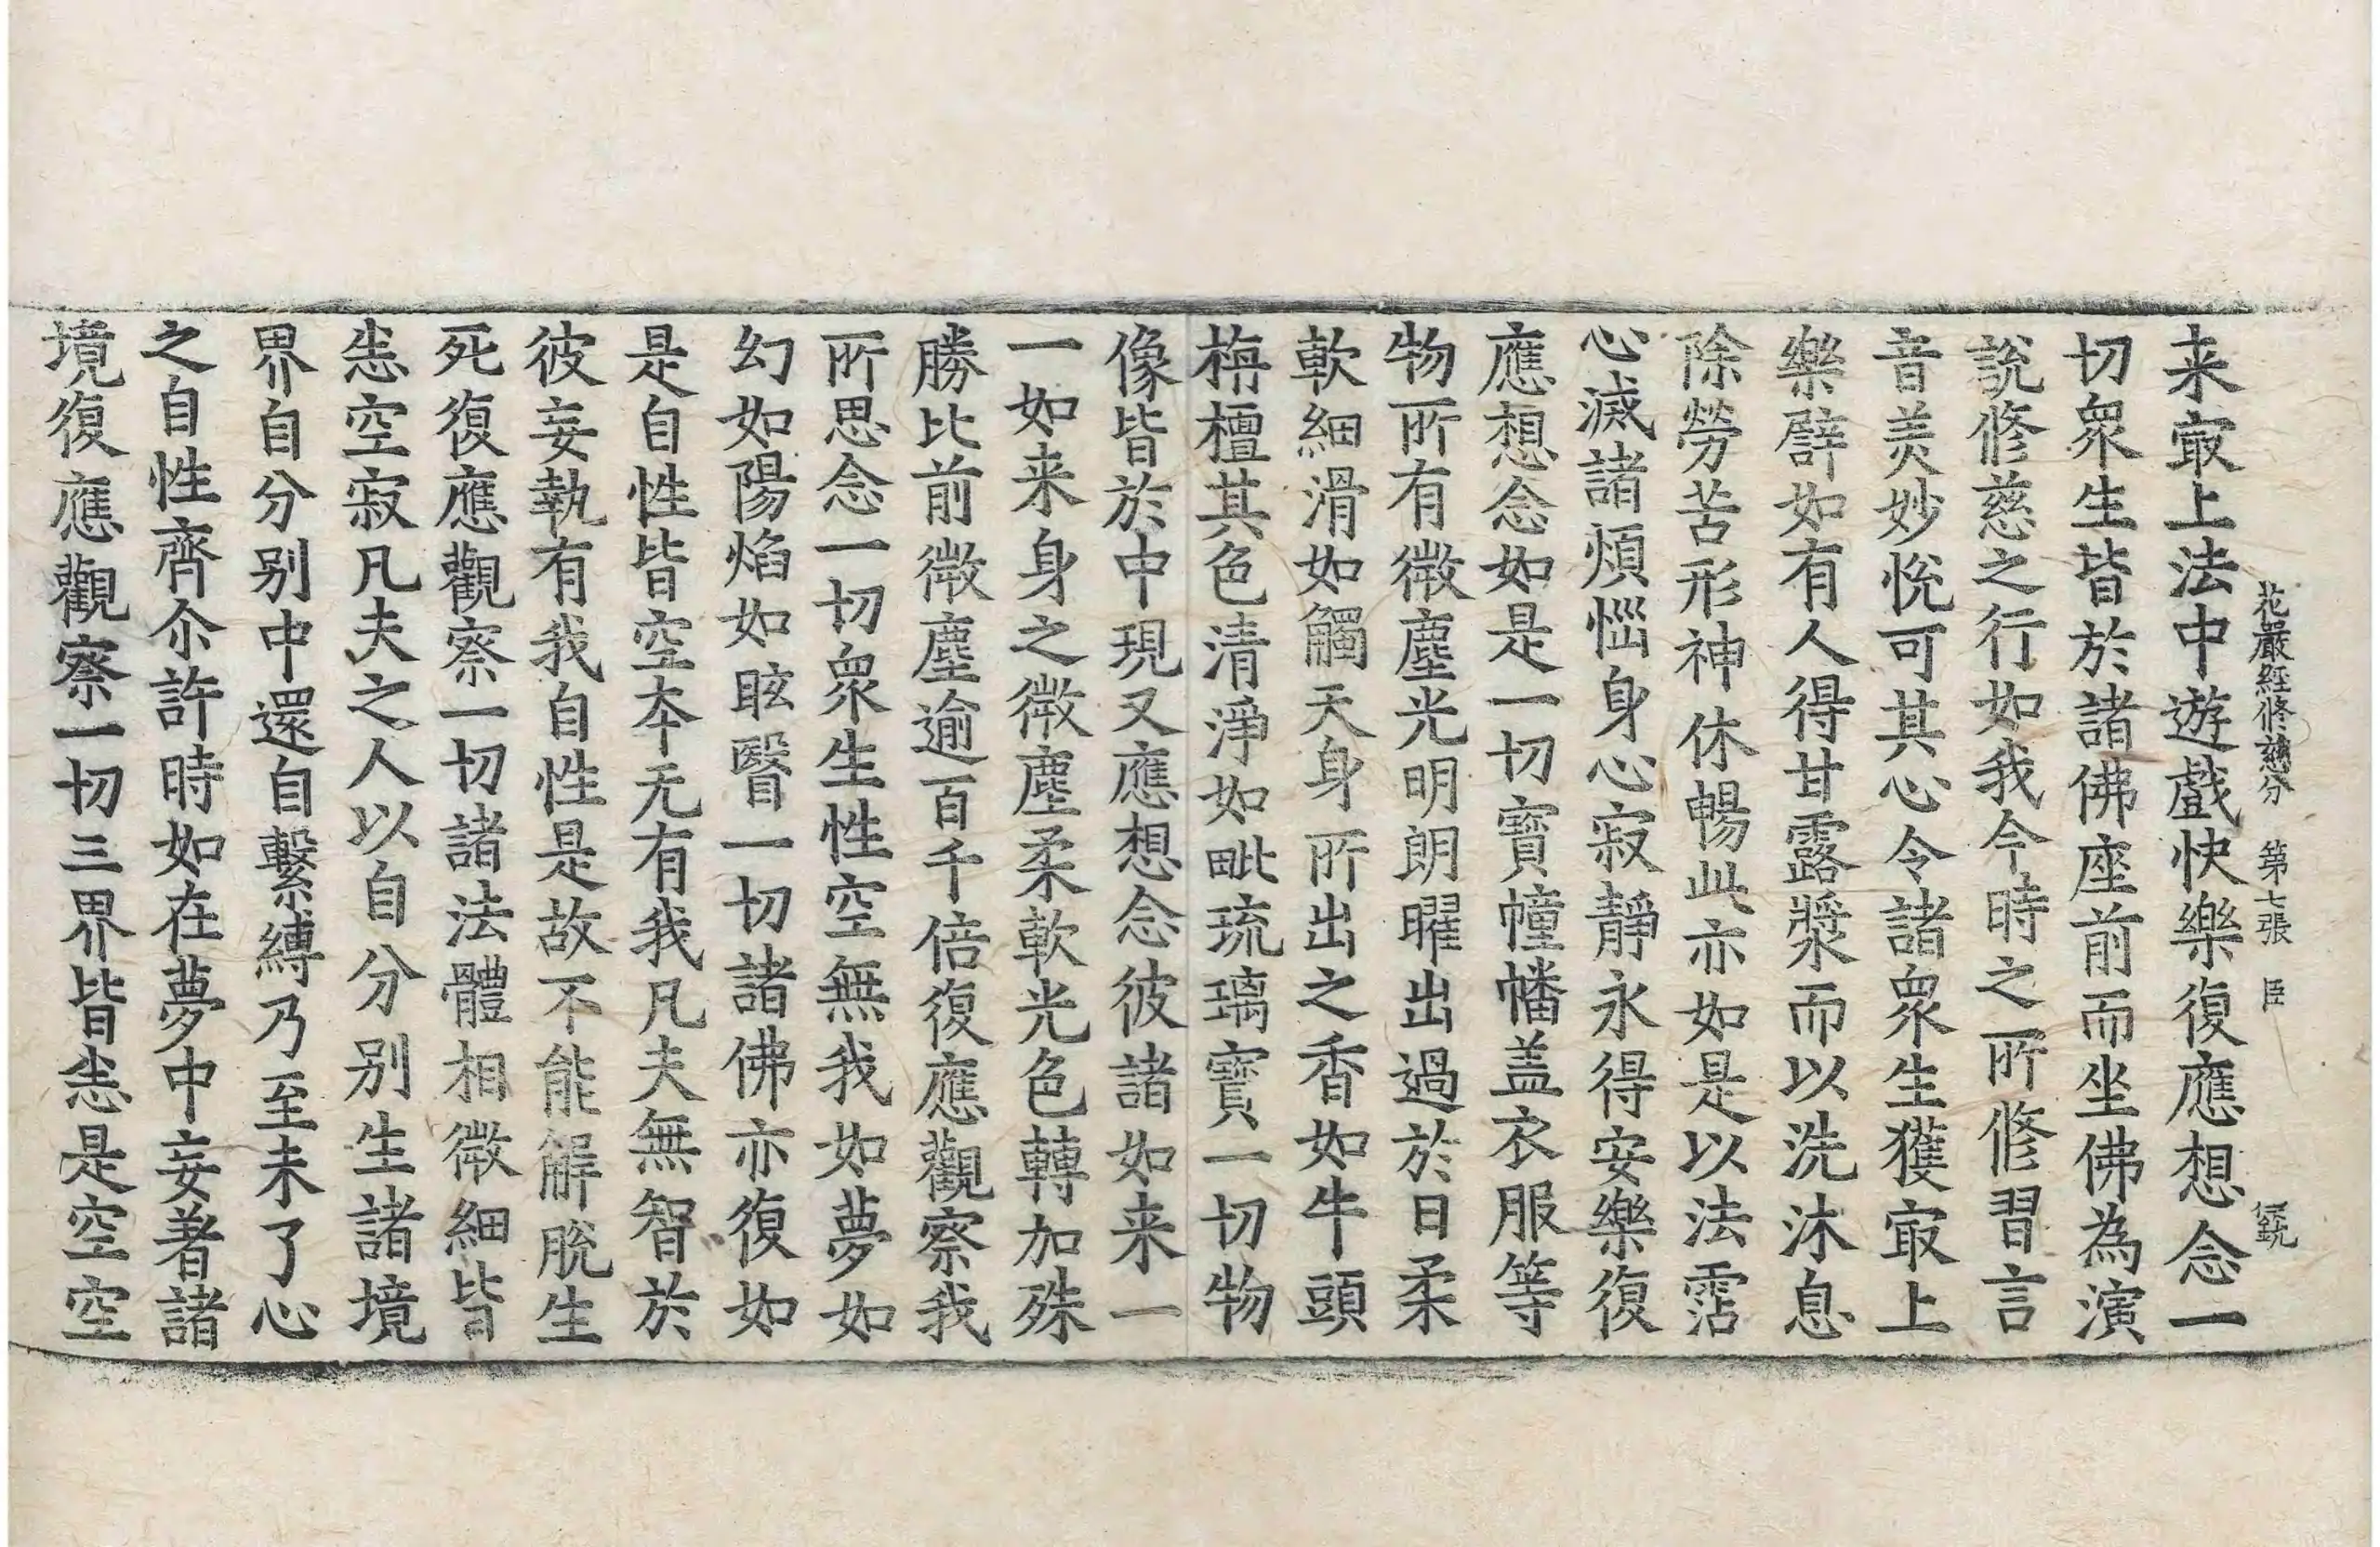 花嚴經修慈分 第七張 臣
来冣上法中遊戲快樂復應想念一
切衆生皆於諸佛座前而坐佛為演
說修慈之行如我今時之所修習言
音美妙悅可其心令諸衆生獲冣上
樂譬如有人得甘露漿而以洗沐息
除勞苦形神休暢此亦如是以法霑
心滅諸煩惱身心寂靜永得安樂復
應想念如是一切寶幢幡盖衣服等
物所有微塵光明朗曜出過於日柔
軟細滑如觸天身所出之香如牛頭
栴檀其色清淨如毗琉璃寶一切物
像皆於中現又應想念彼諸如来一
一如来身之微塵柔軟光色轉加殊
勝比前微塵逾百千倍復應觀察我
所思念一切衆生性空無我如夢如
幻如陽焰如眩瞖一切諸佛亦復如
是自性皆空夲无有我凡夫無智於
彼妄執有我自性是故不能解脫生
死復應觀察一切諸法體相微細皆
悉空寂凡夫之人以自分别生諸境
界自分别中還自繫縛乃至未了心
之自性齊尒許時如在夢中妄著諸
境復應觀察一切三界皆悉是空空